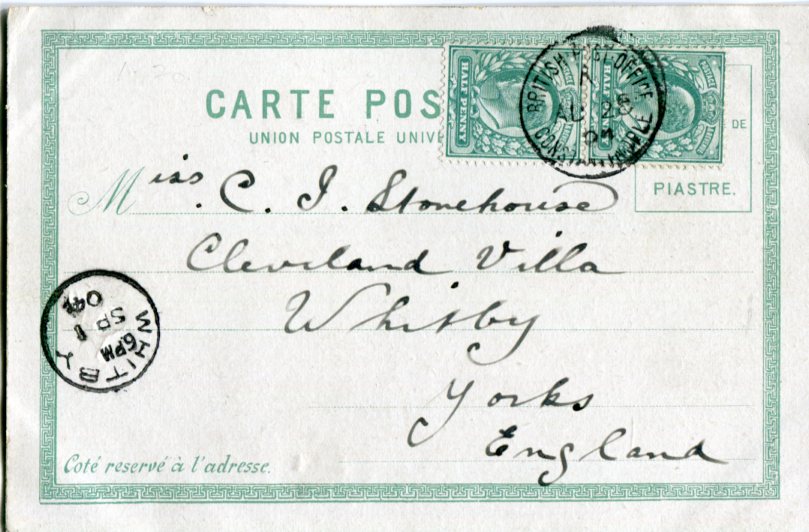 CARTE POS
UNION POSTALE UNIV
HALF PENNY
HALF PENNY
BRITISH POST OFFICE
A
AU 25
04
CONSTANTINOPLE
DE
PIASTRE.
Miss. C. J. Stonehouse
Cleveland Villa
Whitby
Yorks
England
WHITBY
6 PM
SP 1
04
Coté reservé à l'adresse.